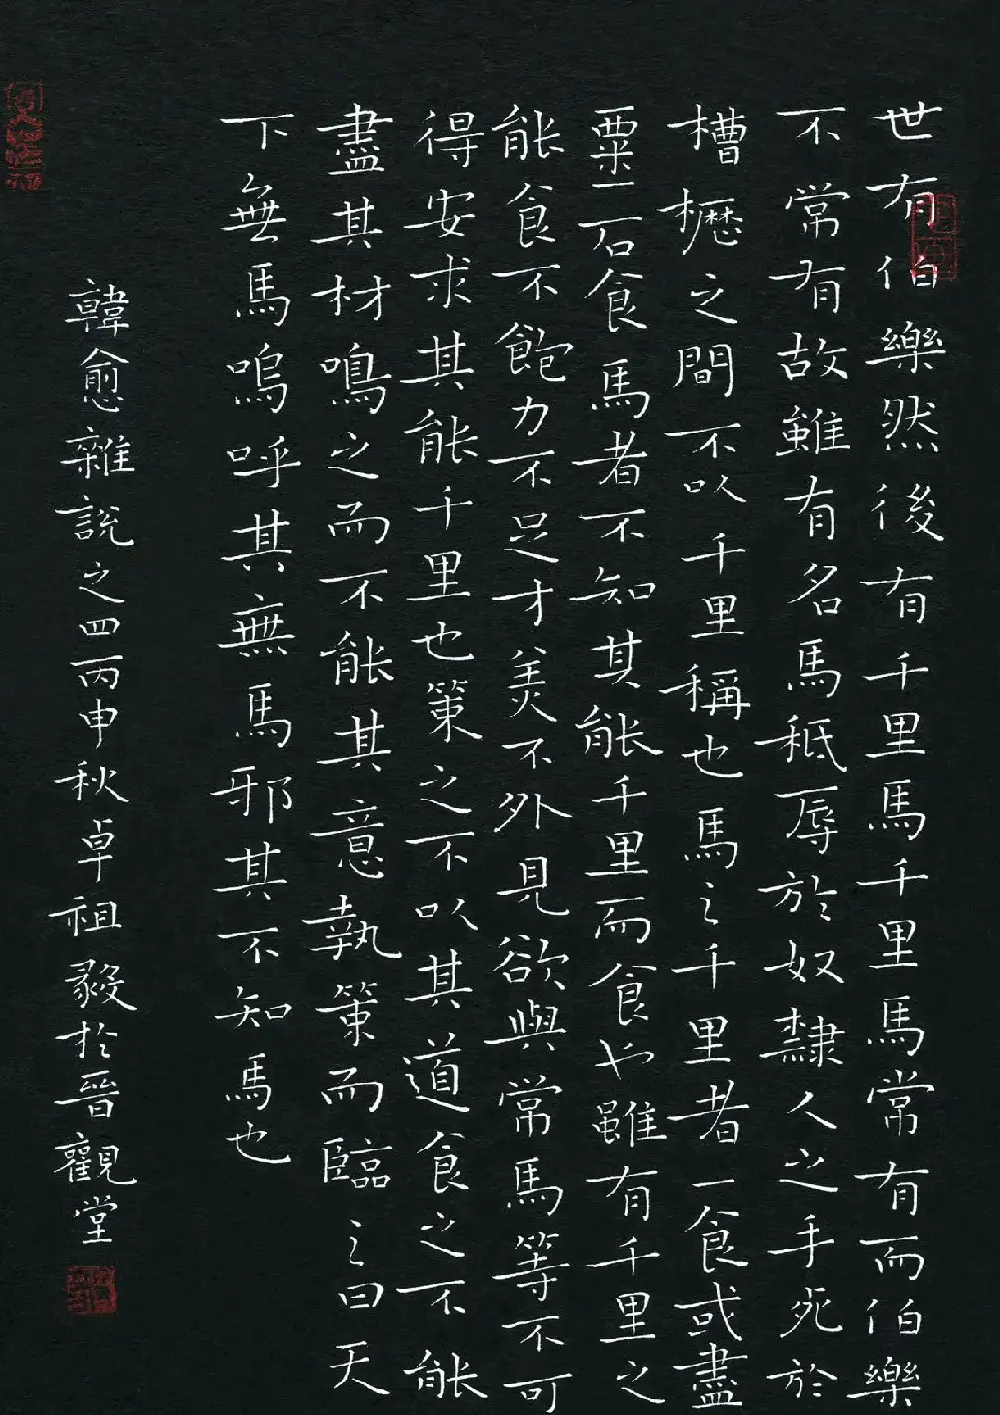 世有伯樂然後有千里馬千里馬常有而伯樂
不常有故雖有名馬秖辱於奴隸人之手死於
槽櫪之間不以千里稱也馬之千里者一食或盡
粟一石食馬者不知其能千里而食也雖有千里之
能食不飽力不足才美不外見欲與常馬等不可
得安求其能千里也策之不以其道食之不能
盡其材鳴之而不能其意執策而臨之曰天
下無馬嗚呼其無馬邪其不知馬也
韓愈雜說之四丙申秋卓祖毅於晉觀堂